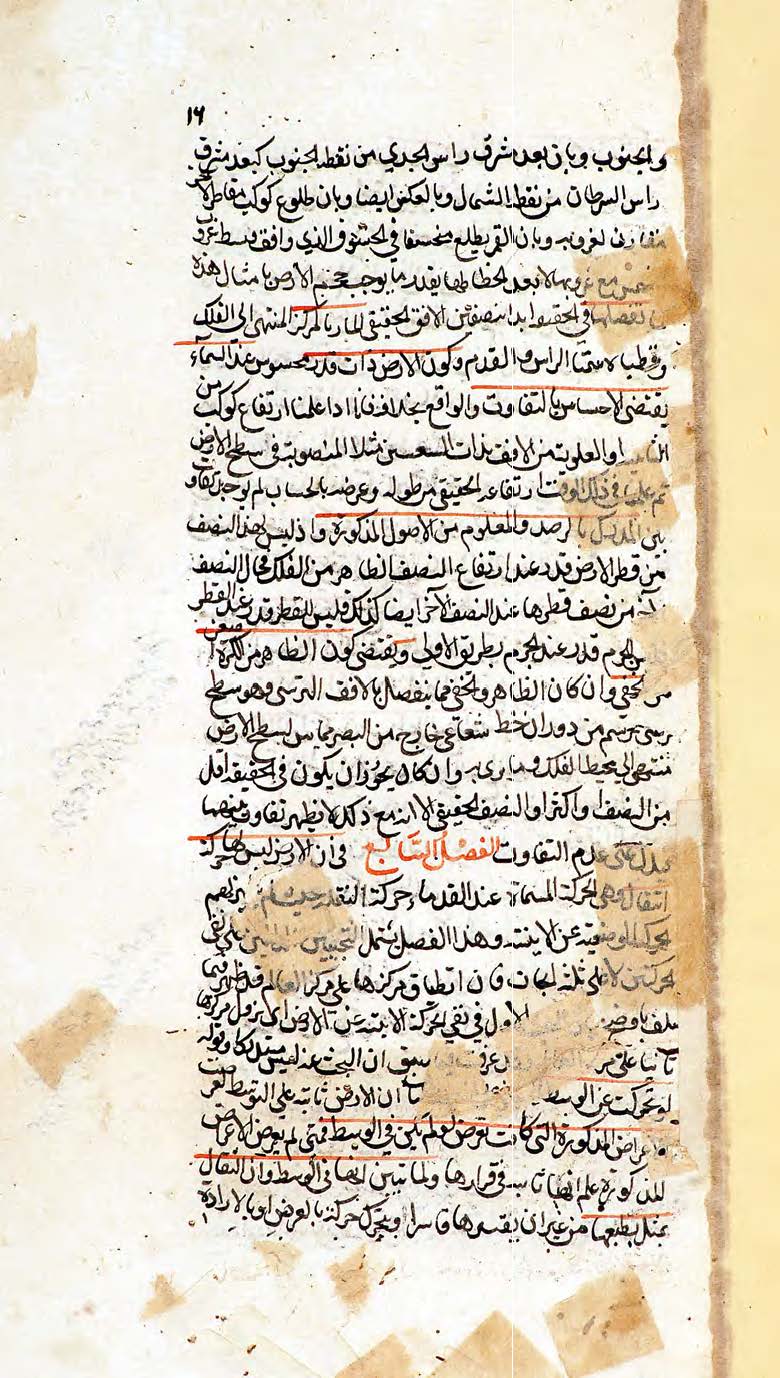 ١٦
والجنوب وبان بعد مشرق راس الجدي من نقطه الجنوب كبعد مشرق
راس السرطان من نقطه الشمال وبالعكس ايضا وبان طلوع كوكب
لغروبه وبان القمر يطلع منخسفا في الخسوف الذي وافق وسط غروب
الشمس مع غروبها لا بعد انحطاطها بقدر ما يوجب حجم الارض بامثال هذه
في الحقيقه ابدا بنصفين الافق الحقيقي المار بالمركز المنتهى الى الفلك
وقطباه سمتا الراس والقدم وكون الارض ذات قدر محسوس عند السماء
يقتضى الاحساس بالتفاوت والواقع بخلافه فانا اذا علمنا ارتفاع كوكب من
او العلوية من الافق بذات الشعبتين مثلا المنصوبة في سطح الارض
ثم علمنا في ذلك الوقت ارتفاعه الحقيقي من طوله وعرضه بالحساب لم يوجد تفاوت
بين المدرك بالرصد والمعلوم من الاصول المذكورة واذ ليس لهذا النصف
من قطر الارض قدر عند ارتفاع النصف الظاهر من الفلك فحال النصف
من نصف قطرها عند النصف الآخر ايضا كذلك فليس للقطر قدر عند القطر
الجرم قدر عند الجرم بطريق الاولى ويقتضى كون الظاهر من الكرة اصغر
من الخفي وان كان الظاهر والخفي مما ينفصل بالافق الترسى وهو سطح
يرتسم من دوران خط شعاعى خارج من البصر مماس لسطح الارض
منتهى الى محيط الفلك وما يرى به وان كان يجوز ان يكون في الحقيقة اقل
من النصف او اكثر او النصف الحقيقي الا انه مع ذلك لا يظهر تفاوت بينهما
فيدل على عدم التفاوت الفصل السابع في ان الارض ليس لها حركة
انتقال وهى الحركة المسماة عند القدماء حركة النقلة
الحركة الوضعية عن الاينية وهذا الفصل يشتمل على نفى
الحركتين لا على ثلثه ابحاث فان انطباق مركزها على مركز العالم قد ظهر فيما
سلف الاول في نفي الحركة الاينية عن الارض اى يزول مركزها
سبق ان البحث عنه ليس مستدركا وقوله
لو تحركت عن الوسط ان الارض ثابتة على التوسط
الاعراض المذكورة التى كانت تعرض لو لم تكن في الوسط فمتى لم يعرض الاعراض
المذكورة علم انها ثابتة في قرارها ولما تبين انها في الوسط وان الثقال
تميل بطبعها من غير ان يقسرها قاسر او يتحرك حركة بالعرض او بالارادة